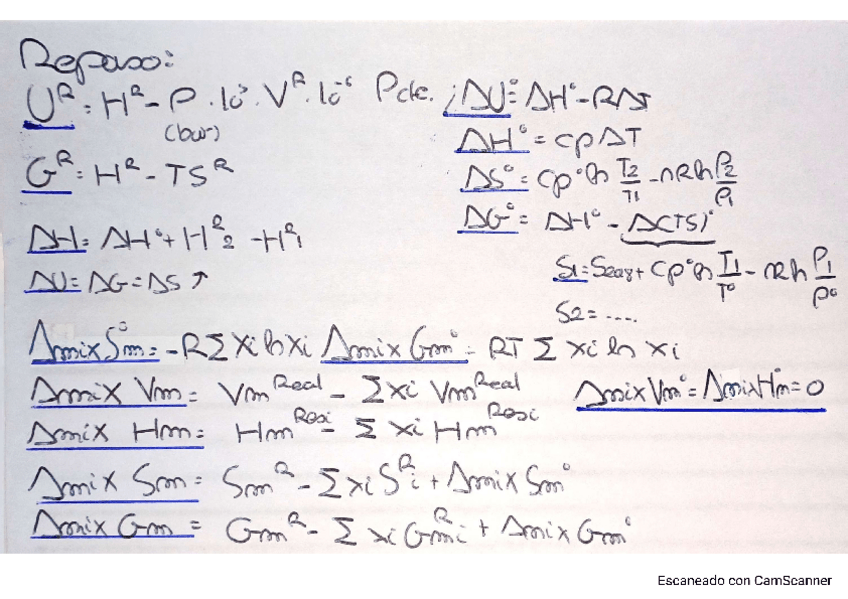 Repaso:
U^R = H^R - P · 10^5 · V^R · 10^-6 Pcte. ; ΔU° = ΔH° - RΔT
(bar)
ΔH° = cp ΔT
G^R = H^R - TS^R
ΔS° = cp° ln T2/T1 - nR ln P2/P1
ΔG° = ΔH° - Δ(TS)°
ΔH = ΔH° + H^R_2 - H^R_1
S1 = S298 + cp° ln T1/T° - nR ln P1/P°
ΔU = ΔG = ΔS ↑
S2 = ....
Δmix Sm° = -R Σ xi ln xi Δmix Gm° = RT Σ xi ln xi
Δmix Vm = Vm^Real - Σ xi Vm^Real
Δmix Vm° = Δmix Hm° = 0
Δmix Hm = Hm^Resi - Σ xi Hm^Resi
Δmix Sm = Sm^R - Σ xi S^R_i + Δmix Sm°
Δmix Gm = Gm^R - Σ xi Gm^R_i + Δmix Gm°
Escaneado con CamScanner